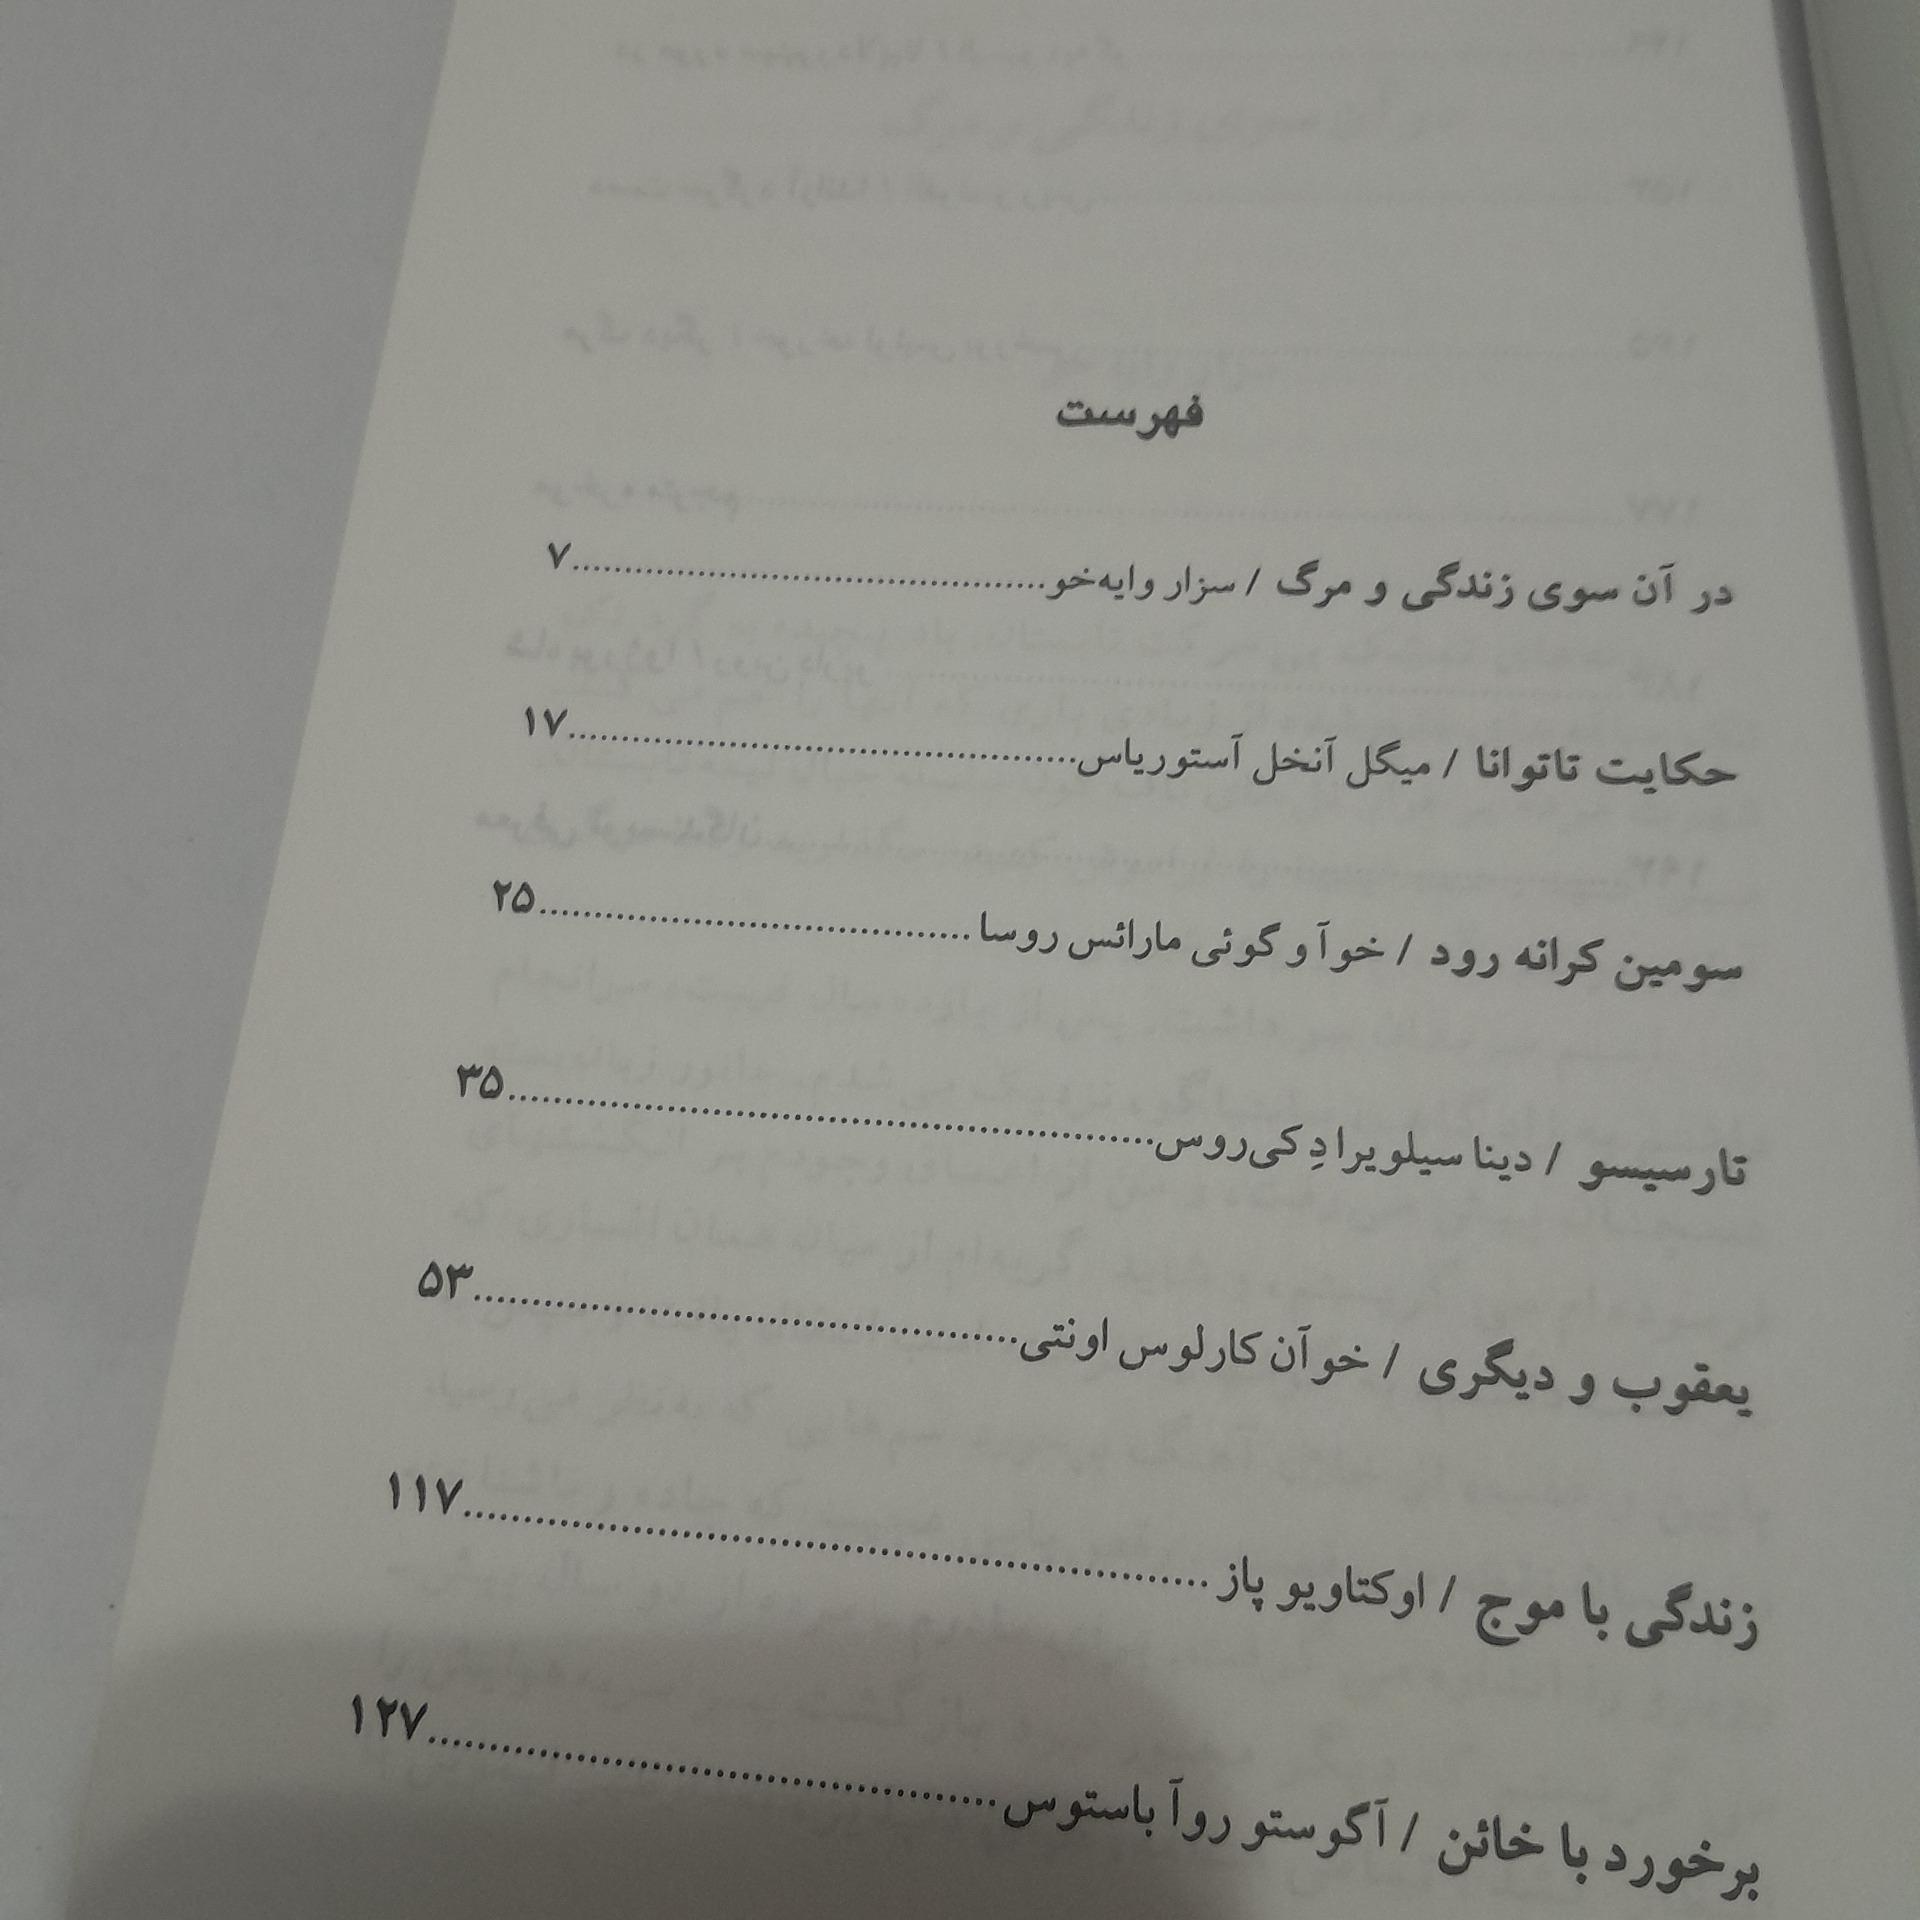 فهرست
در آن سوی زندگی و مرگ / سزار وایه‌خو..............................................۷
حکایت تاتوانا / میگل آنخل آستوریاس..............................................۱۷
سومین کرانه رود / خوآو گوئی مارائس روسا..............................................۲۵
تارسیسو / دینا سیلویرا دِکی‌روس..............................................۳۵
یعقوب و دیگری / خوآن کارلوس اونتی..............................................۵۳
زندگی با موج / اوکتاویو پاز..............................................۱۱۷
برخورد با خائن / آگوستو روآ باستوس..............................................۱۲۷